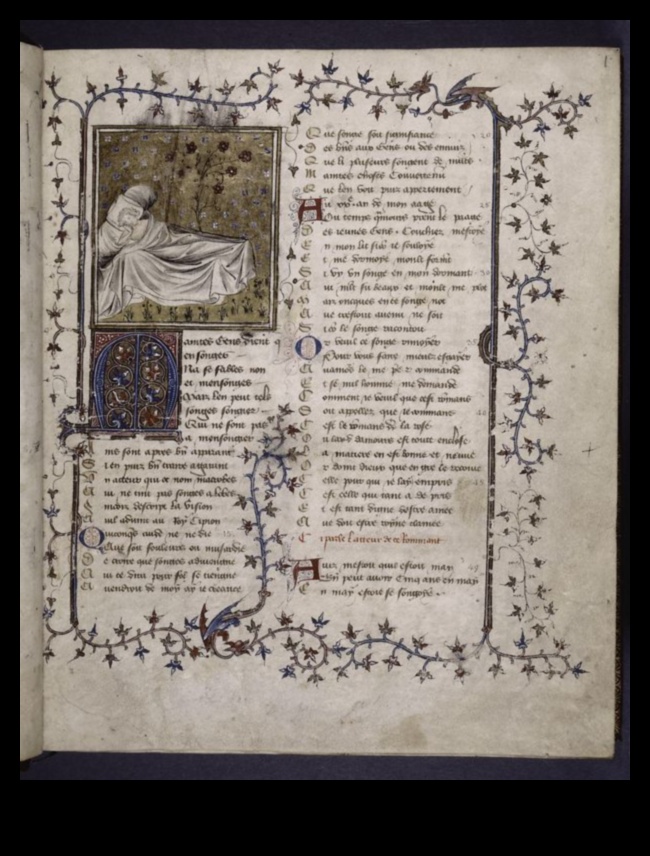 Maintes Gens dient q
en songes
Na se fables non
et mensonges
Mais len peut telz
songes songier
Qui ne sont pas
a mensongier
ms sont apres bn apparant
i en puiz bn traire agarant
n acteur qui ot nom macrobes
ui ne tint pas songes a lobes
descript la vision
ui advint au Roy Cipion
Quiconq cuide ne ne die
Que soit ou musardie
e croire que songes adviengne
ui ce dira pour fol se tiengne
uendroit de moy ay ie creance
Que songe soit
Des biens aux Gens ou des ennuiz
ue li plusieurs songent de nuits
maintes choses Couvertemt
Que len voit puis appertement
Au xxe an de mon aage
Ou temps qamours prent le paage
es ieunes Gens Couchiez mestoye
n mon lit si ie souloye
t me dormoye moult formt
i vy vn songe en mon dormant
ui mlt fu beaux et moult me
ar oncques en ce songe not
ue trestout auenu ne soit
ico le songe racontoit
Or veuil ce songe rimoyer
Pour vous faire mieux esgayer
uamours le me pe et commande
t se nul homme me demande
omment ie veuil que cest romans
ou appellez que ie commans
est le romans de la rose
u lart damours est toute enclose
a matiere en est bonne et neuue
r doint dieux que en gre le recoiue
elle pour qui ie lay empris
est celle qui tant a de pris
t est tant digne destre amee
ue doit estre rose clamee
Cy parle lacteur de ce rommant
Auiz mestoit que estoit may
Bn peut auoir Cinq ans en may
n may estoie ce songoye